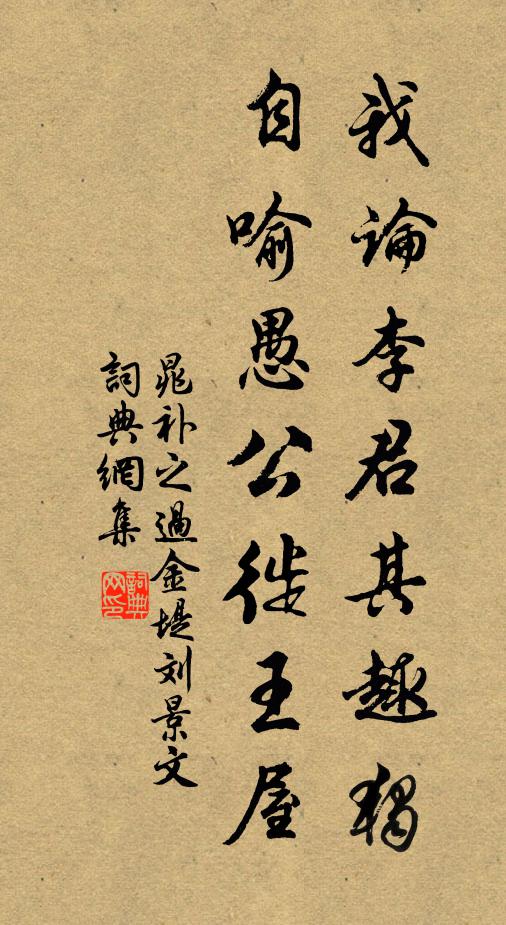 我論李君其趣獨
自喻愚公徙王屋
晁补之過金堤刘景文
詞典網集
詞典网印